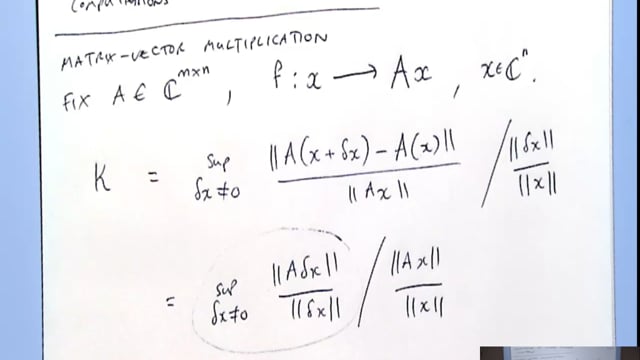 COMPUTATIONS
MATRIX-VECTOR MULTIPLICATION
FIX A ∈ ℂ^{m×n} , f : x ⟶ Ax , x ∈ ℂ^n .
K = sup_{δx≠0} ||A(x + δx) − A(x)|| / ||Ax|| / ||δx|| / ||x||
= sup_{δx≠0} ||Aδx|| / ||δx|| / ||Ax|| / ||x||